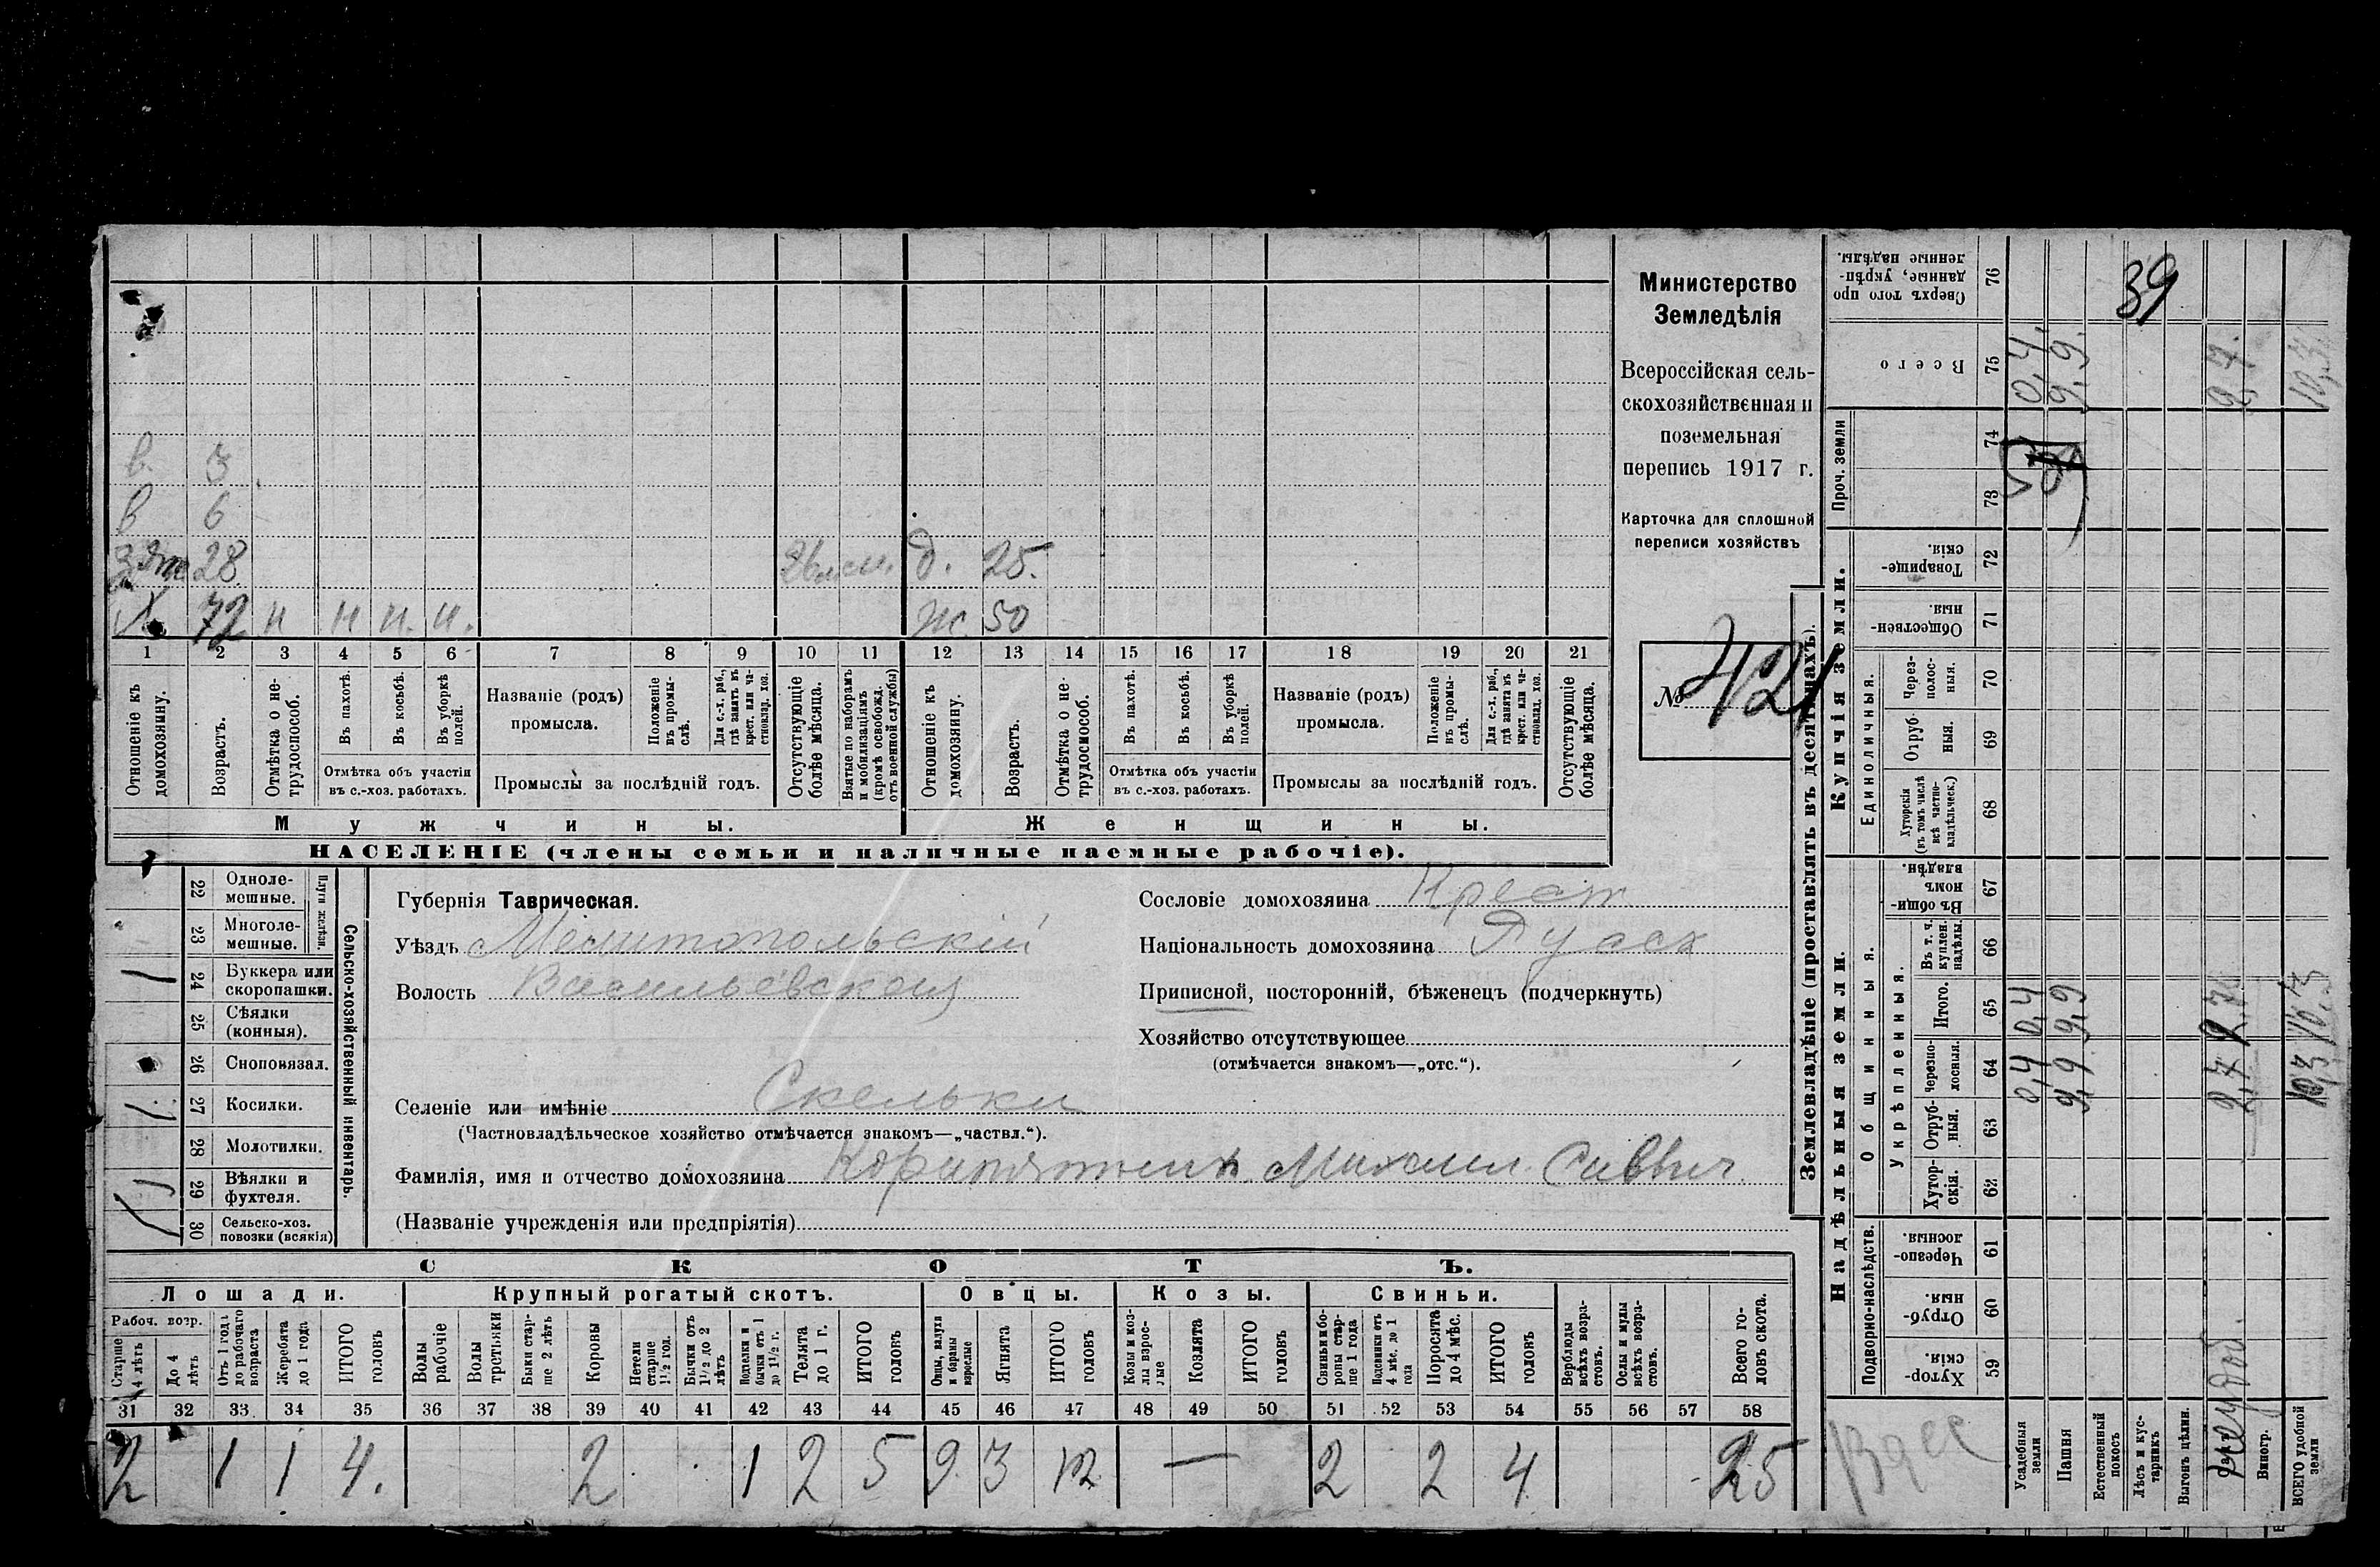 в. 3
в 6
зять 28 д. 25.
Х 72 н н н. н. ж. 50
1 2 3 4 5 6 7 8 9 10 11 12 13 14 15 16 17 18 19 20 21
Отношеніе къ домохозяину.
Возрастъ.
Отмѣтка о не-трудоспособ.
Въ пахотѣ.
Въ косьбѣ.
Въ уборкѣ полей.
Отмѣтка объ участіи
въ с.-хоз. работахъ.
Названіе (родъ)
промысла.
Положеніе въ промы-слѣ.
Для с.-х. раб., гдѣ занятъ въ крест. или ча-стновлад. хоз.
Промыслы за послѣдній годъ.
Отсутствующіе болѣе мѣсяца.
Взятые по наборамъ и мобилизаціямъ (кромѣ освобожд. отъ военной службы)
Отношеніе къ домохозяину.
Возрастъ.
Отмѣтка о не-трудоспособ.
Въ пахотѣ.
Въ косьбѣ.
Въ уборкѣ полей.
Отмѣтка объ участіи
въ с.-хоз. работахъ.
Названіе (родъ)
промысла.
Положеніе въ промы-слѣ.
Для с.-х. раб., гдѣ занятъ въ крест. или ча-стновлад. хоз.
Промыслы за послѣдній годъ.
Отсутствующіе болѣе мѣсяца.
Мужчины.
Женщины.
НАСЕЛЕНІЕ (члены семьи и наличные наемные рабочіе).
Министерство
Земледѣлія
Всероссійская сель-
скохозяйственная и
поземельная
перепись 1917 г.
Карточка для сплошной
переписи хозяйствъ
№ 421
Сельско-хозяйственный инвентарь.
Плуги желѣзн.
22 Однолемешные.
23 Многолемешные.
24 Буккера или скоропашки.
25 Сѣялки (конныя).
26 Сноповязал.
27 Косилки.
28 Молотилки.
29 Вѣялки и фухтеля.
30 Сельско-хоз. повозки (всякія)
Губернія Таврическая.
Уѣздъ Мелитопольскій
Волость Васильевская
Сословіе домохозяина Крест
Національность домохозяина Русск
Приписной, посторонній, бѣженецъ (подчеркнуть)
Хозяйство отсутствующее
(отмѣчается знакомъ—„отс.“).
Селеніе или имѣніе Скельки
(Частновладѣльческое хозяйство отмѣчается знакомъ—„частвл.“).
Фамилія, имя и отчество домохозяина Михаил Саввич
(Названіе учрежденія или предпріятія)
СКОТЪ.
Лошади.
Крупный рогатый скотъ.
Овцы.
Козы.
Свиньи.
Рабоч. возр.
Старше 4 лѣтъ
До 4 лѣтъ
Отъ 1 года до рабочаго возраста
Жеребята до 1 года
ИТОГО головъ
Волы рабочіе
Волы третьяки
Быки стар-ше 2 лѣтъ
Коровы
Нетели старше 1½ год.
Бычки отъ 1½ до 2 лѣтъ
Подтелки и бычки отъ 1 до 1½ г.
Телята до 1 г.
ИТОГО головъ
Овцы, валухи и бараны взрослые
Ягнята
ИТОГО головъ
Козы и коз-лы взрос-лые
Козлята
ИТОГО головъ
Свиньи и бо-ровы стар-ше 1 года
Подсвинки отъ 4 мѣс. до 1 года
Поросята до 4 мѣс.
ИТОГО головъ
Верблюды всѣхъ возра-стовъ.
Ослы и мулы всѣхъ возра-стовъ.
Всего го-ловъ скота.
31 32 33 34 35 36 37 38 39 40 41 42 43 44 45 46 47 48 49 50 51 52 53 54 55 56 57 58
2 1 1 4. 2 1 2 5 9 3 12 — 2 2 4 25
Землевладѣніе (проставлять въ десятинахъ).
Надѣльныя земли.
Купчія земли.
Проч. земли
Подворно-наслѣдств.
Общинныя.
Укрѣпленныя.
Единоличныя.
Сверхъ того про-данные, укрѣп-ленные надѣлы. 76
Всего 75
74
73
Товарище-скія. 72
Обществен-ныя. 71
Черезполос-ныя. 70
Отруб-ныя. 69
Хуторскія (въ томъ числѣ всѣ частно-владѣльческ.) 68
Въ общин-номъ владѣн. 67
Въ т. ч. куплен. надѣлы. 66
Итого. 65
Черезпо-лосныя. 64
Отруб-ныя. 63
Хутор-скія. 62
Черезпо-лосныя. 61
Отруб-ныя. 60
Хутор-скія. 59
Усадебныя земли 0,4 0,4 0,4
Пашня 9,9 9,9 9,9
Естественный покосъ
Лѣсъ и кус-тарникъ
Выгонъ цѣлин.
неудоб. 2,7 2,7 2,7
Виногр.
ВСЕГО удобной земли 10,3 10,3 10,3
39